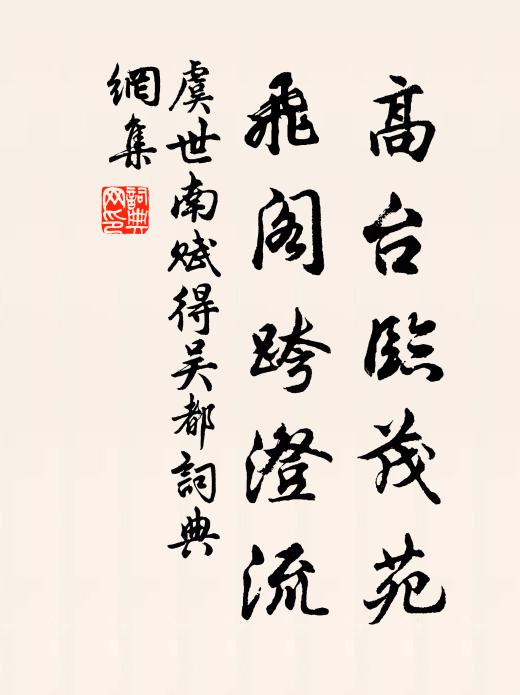 高台臨茂苑
飛閣跨澄流
虞世南賦得吴都詞典
網集
詞典
网印